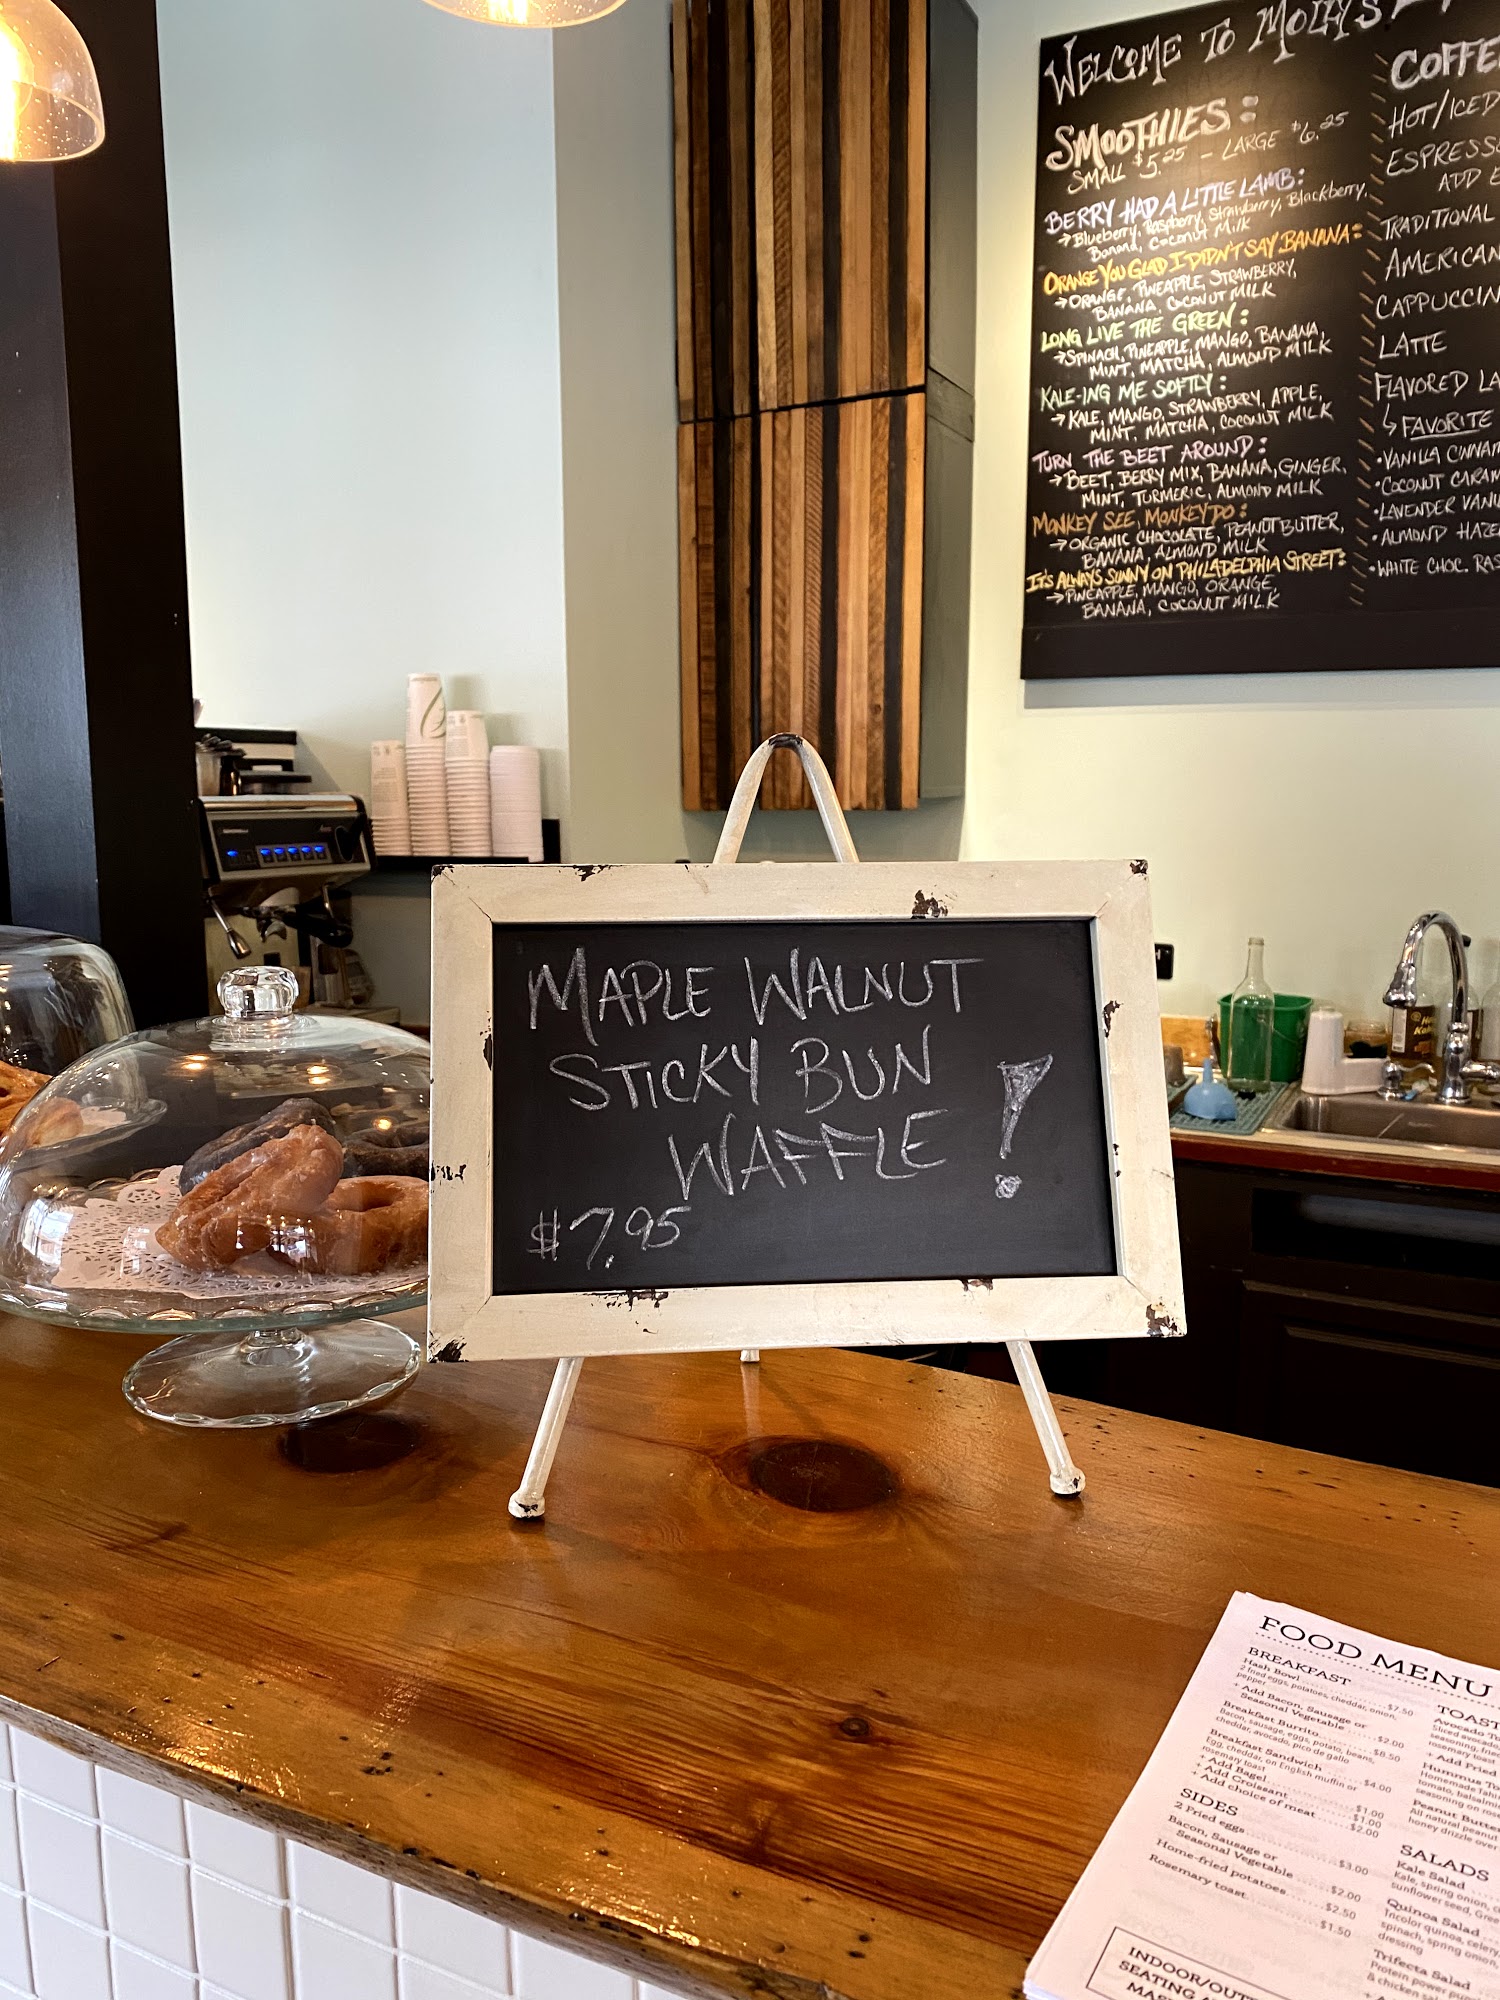 WELCOME TO MOLLY'S
SMOOTHIES:
SMALL $5.25 - LARGE $6.25
BERRY HAD A LITTLE LAMB:
→ Blueberry, Raspberry, Strawberry, Blackberry,
Banana, Coconut Milk
ORANGE YOU GLAD I DIDN'T SAY BANANA:
→ ORANGE, PINEAPPLE, STRAWBERRY,
BANANA, COCONUT MILK
LONG LIVE THE GREEN:
→ SPINACH, PINEAPPLE, MANGO, BANANA,
MINT, MATCHA, ALMOND MILK
KALE-ING ME SOFTLY:
→ KALE, MANGO, STRAWBERRY, APPLE,
MINT, MATCHA, COCONUT MILK
TURN THE BEET AROUND:
→ BEET, BERRY MIX, BANANA, GINGER,
MINT, TURMERIC, ALMOND MILK
MONKEY SEE, MONKEY DO:
→ ORGANIC CHOCOLATE, PEANUT BUTTER,
BANANA, ALMOND MILK
IT'S ALWAYS SUNNY ON PHILADELPHIA STREET:
→ PINEAPPLE, MANGO, ORANGE,
BANANA, COCONUT MILK
COFFE
HOT/ICED
ESPRESS
ADD
TRADITIONAL
AMERICAN
CAPPUCCIN
LATTE
FLAVORED LA
↳ FAVORITE
• VANILLA CINNAM
• COCONUT CARAM
• LAVENDER VANI
• ALMOND HAZE
• WHITE CHOC. RAS
MAPLE WALNUT
STICKY BUN
WAFFLE !
$7.95
FOOD MENU
BREAKFAST
Hash Bowl $7.50
2 fried eggs, potatoes, cheddar, onion,
pepper
+ Add Bacon, Sausage or
Seasonal Vegetable $2.00
Breakfast Burrito $8.50
Bacon, sausage, eggs, potato, beans,
cheddar, avocado, pico de gallo
Breakfast Sandwich $4.00
Egg, cheddar, on English muffin or
rosemary toast
+ Add Bagel $1.00
+ Add Croissant $1.00
+ Add choice of meat $2.00
SIDES
2 Fried eggs $3.00
Bacon, Sausage or
Seasonal Vegetable $2.00
Home-fried potatoes $2.50
Rosemary toast $1.50
INDOOR/OUT
SEATING
MAS
TOAST
Avocado To
Sliced avocad
seasoning, frie
rosemary toast
+ Add Fried
Hummus To
Homemade Tahi
tomato, balsami
seasoning on ros
Peanut Butte
All natural peanut
honey drizzle over
SALADS
Kale Salad
Kale, spring onion,
sunflower seed, Gree
Quinoa Salad
Tricolor quinoa, celery
spinach, spring onion,
dressing
Trifecta Salad
Protein power
& chicken sal